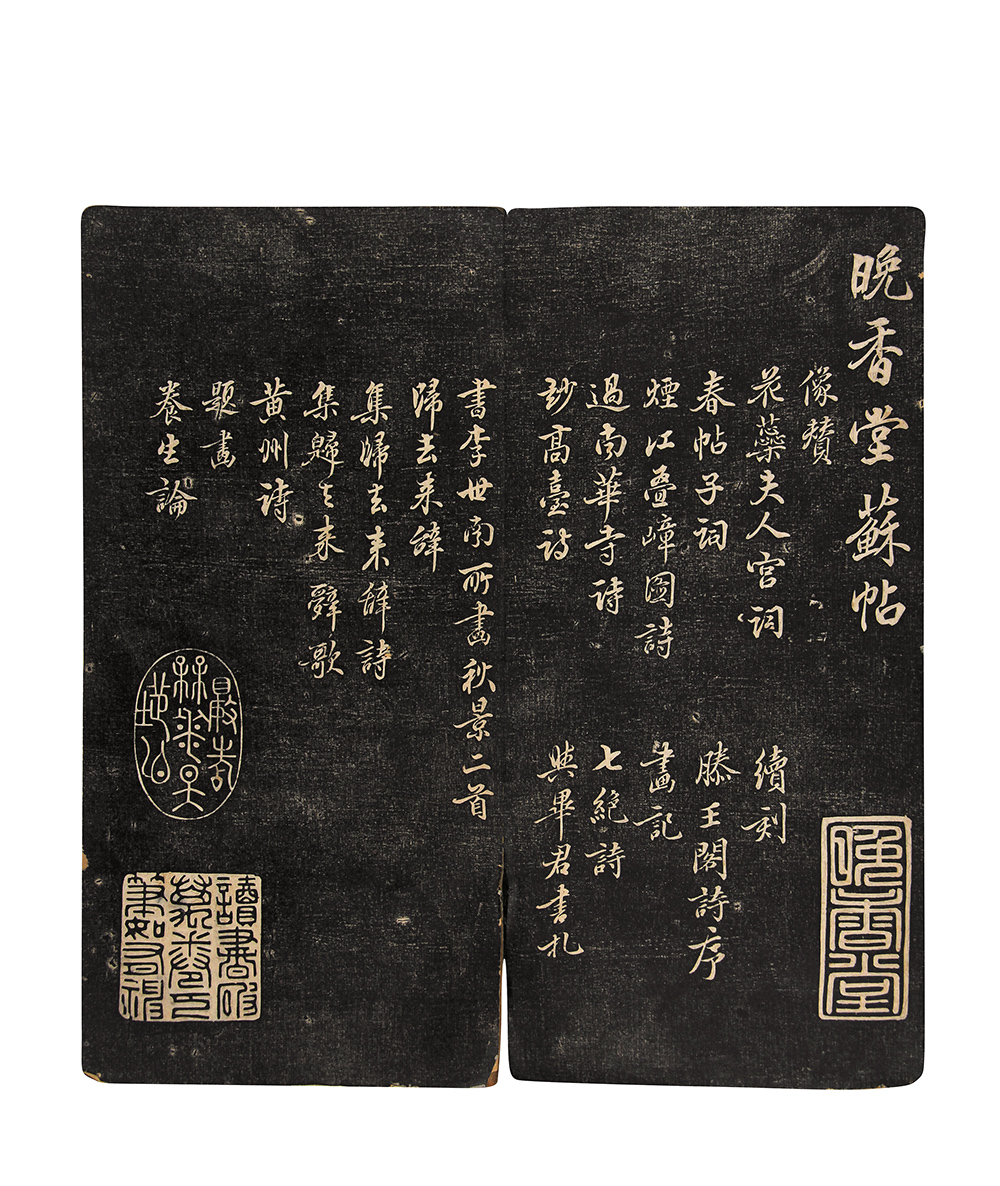 晚香堂蘇帖
像贊
花蘂夫人宮詞
春帖子詞
煙江疊嶂圖詩
過南華寺詩
玅高臺詩
續刻
滕王閣詩序
畫記
七絕詩
與畢君書札
晚香堂
書李世南所畫秋景二首
歸去來辭
集歸去来辭詩
集歸去来辭歌
黃州詩
題畫
養生論
讀書破
萬卷下
筆如有神